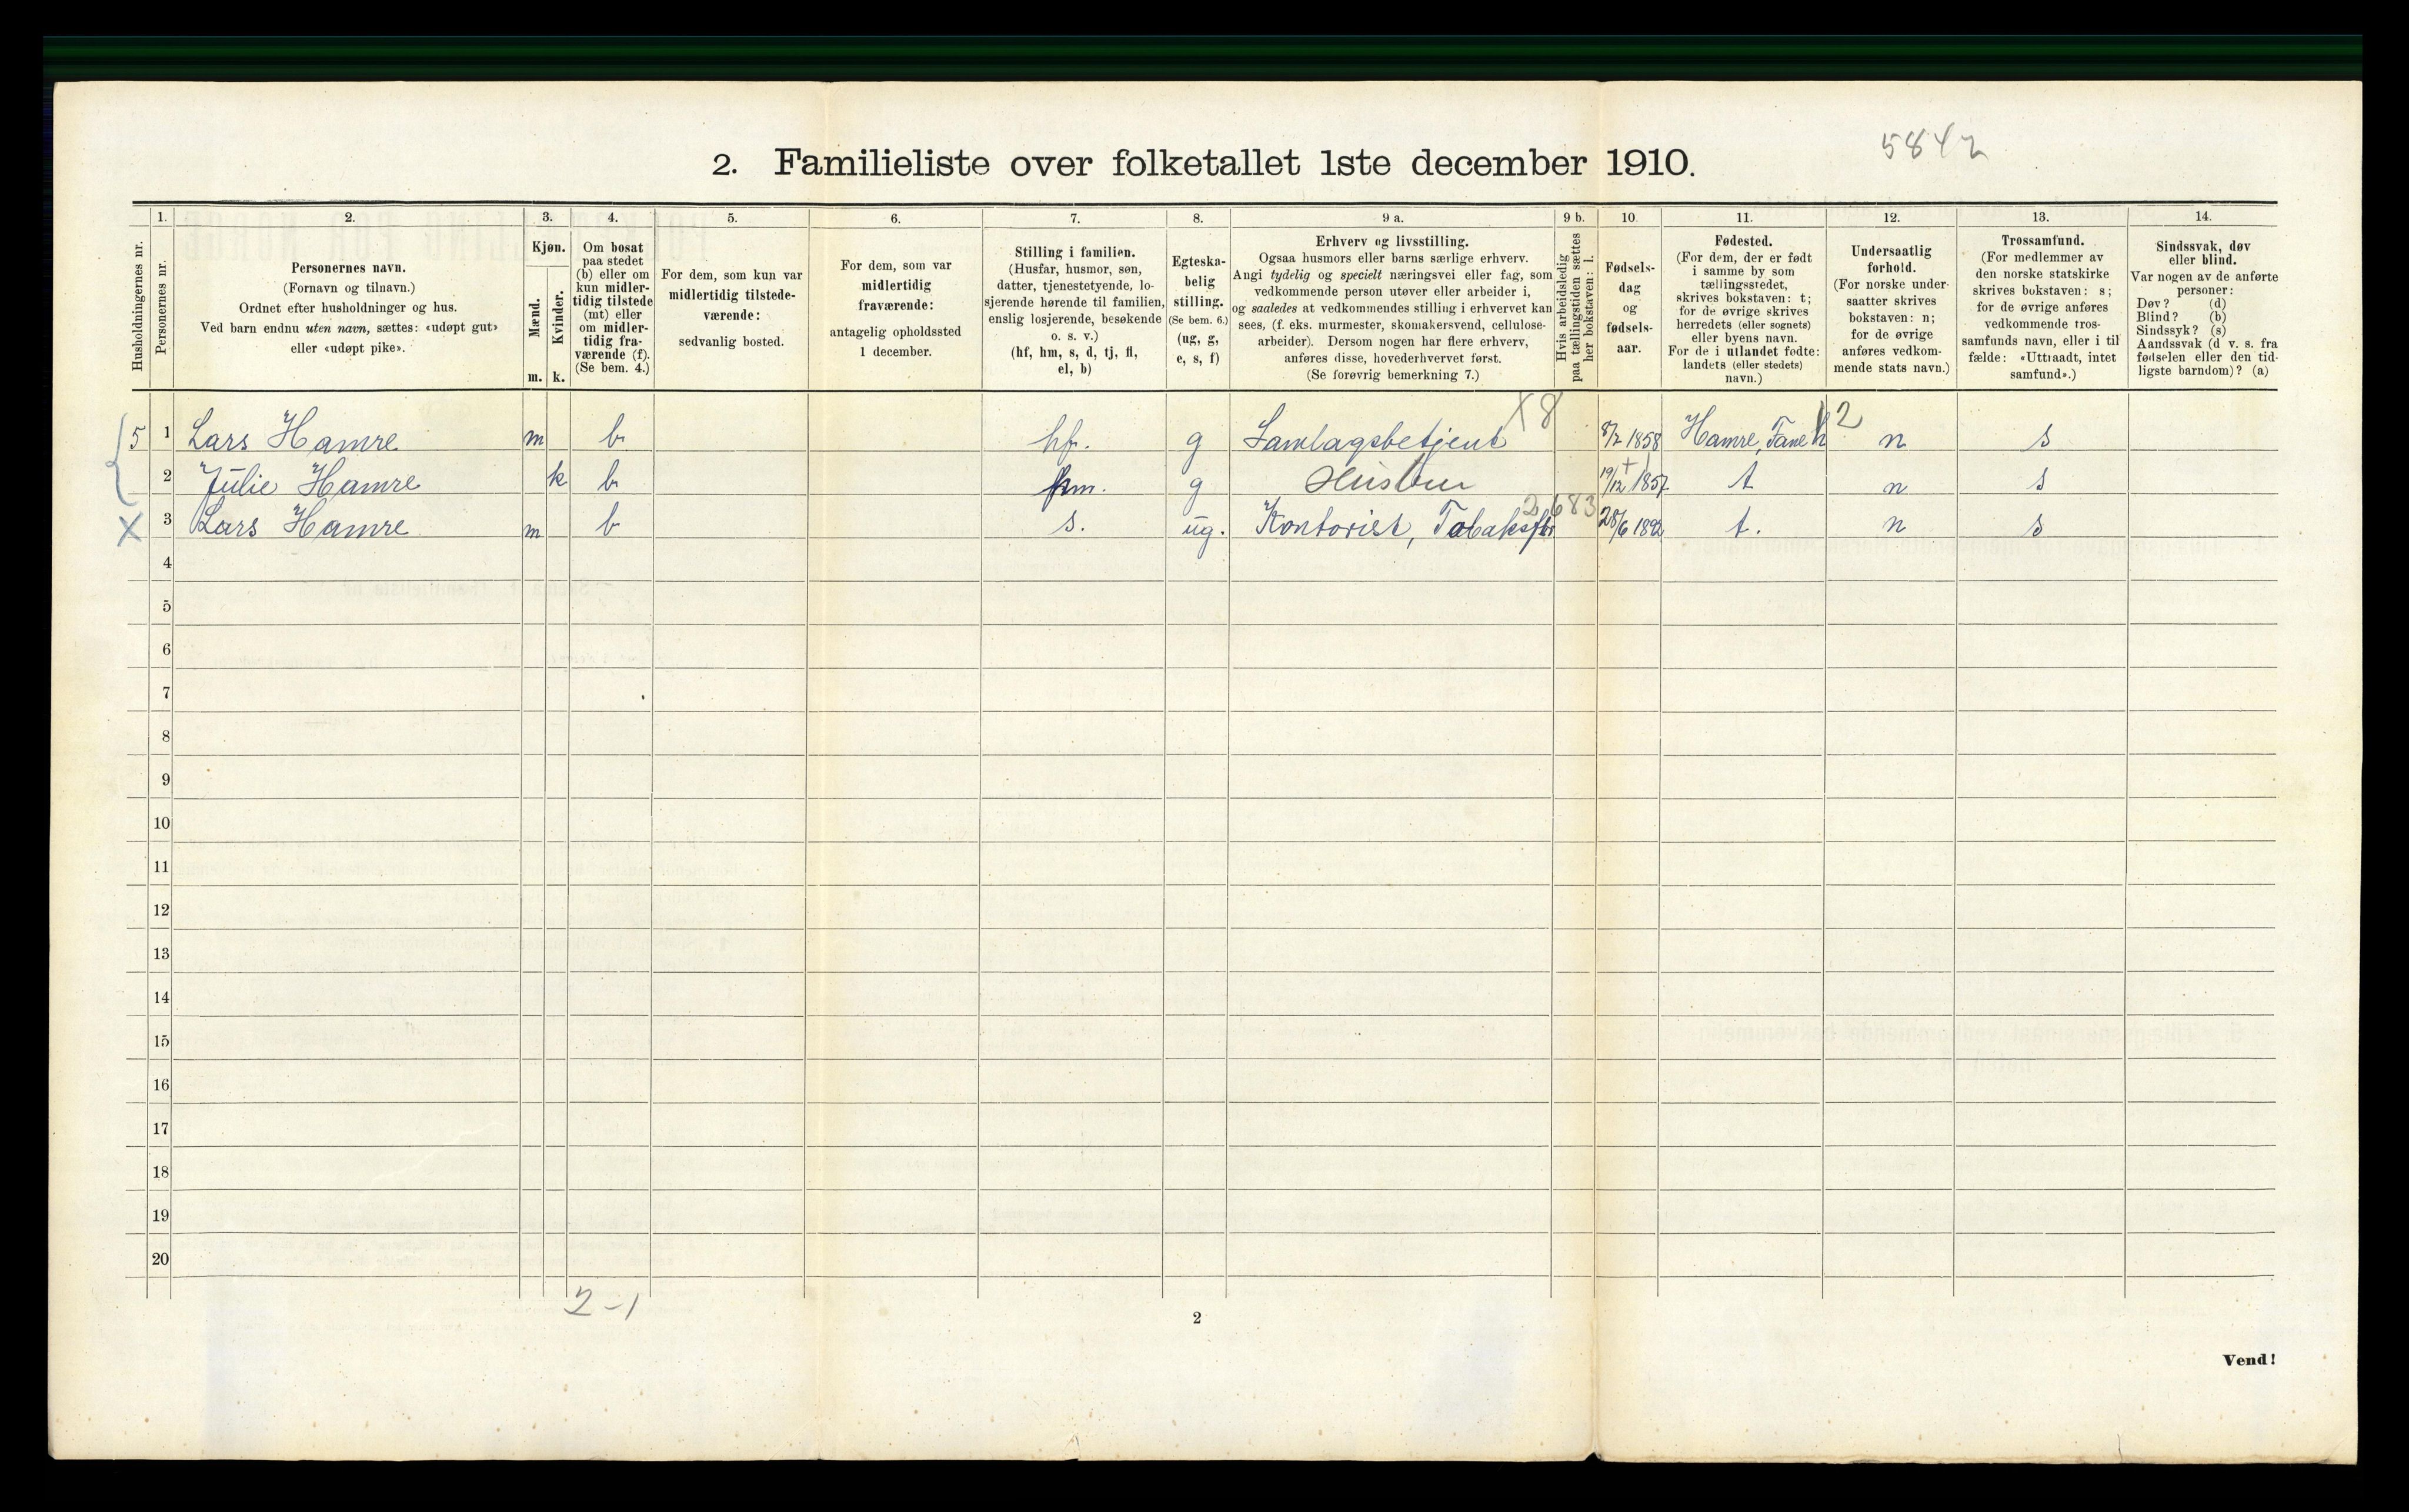 5842
2. Familieliste over folketallet 1ste december 1910.
Husholdningernes nr.
1.
Personernes nr.
2.
Personernes navn.
(Fornavn og tilnavn.)
Ordnet efter husholdninger og hus.
Ved barn endnu uten navn, sættes: «udøpt gut»
eller «udøpt pike».
3.
Kjøn.
Mænd.
m.
Kvinder.
k.
4.
Om bosat
paa stedet
(b) eller om
kun midler-
tidig tilstede
(mt) eller
om midler-
tidig fra-
værende (f).
(Se bem. 4.)
5.
For dem, som kun var
midlertidig tilstede-
værende:
sedvanlig bosted.
6.
For dem, som var
midlertidig
fraværende:
antagelig opholdssted
1 december.
7.
Stilling i familien.
(Husfar, husmor, søn,
datter, tjenestetyende, lo-
sjerende hørende til familien,
enslig losjerende, besøkende
o. s. v.)
(hf, hm, s, d, tj, fl,
el, b)
8.
Egteska-
belig
stilling.
(Se bem. 6.)
(ug, g,
e, s, f)
9 a.
Erhverv og livsstilling.
Ogsaa husmors eller barns særlige erhverv.
Angi tydelig og specielt næringsvei eller fag, som
vedkommende person utøver eller arbeider i,
og saaledes at vedkommendes stilling i erhvervet kan
sees, (f. eks. murmester, skomakersvend, cellulose-
arbeider). Dersom nogen har flere erhverv,
anføres disse, hovederhvervet først.
(Se forøvrig bemerkning 7.)
9 b.
Hvis arbeidsledig
paa tællingstiden sættes
her bokstaven: l.
10.
Fødsels-
dag
og
fødsels-
aar.
11.
Fødested.
(For dem, der er født
i samme by som
tællingsstedet,
skrives bokstaven: t;
for de øvrige skrives
herredets (eller sognets)
eller byens navn.
For de i utlandet fødte:
landets (eller stedets)
navn.)
12.
Undersaatlig
forhold.
(For norske under-
saatter skrives
bokstaven: n;
for de øvrige
anføres vedkom-
mende stats navn.)
13.
Trossamfund.
(For medlemmer av
den norske statskirke
skrives bokstaven: s;
for de øvrige anføres
vedkommende tros-
samfunds navn, eller i til-
fælde: «Uttraadt, intet
samfund».)
14.
Sindssvak, døv
eller blind.
Var nogen av de anførte
personer:
Døv? (d)
Blind? (b)
Sindssyk? (s)
Aandssvak (d. v. s. fra
fødselen eller den tid-
ligste barndom)? (a)
5 1 Lars Hamre m b hf. g Samlagsbetjent X8 8/2 1858 Hamre, Fane h 2 n s
2 Julie Hamre k b hm. g Hustru 19/12 1857 t n s
X 3 Lars Hamre m b s. ug. Kontorist, Tobaksfbr 2,683 28/6 1892 t. n s
4
5
6
7
8
9
10
11
12
13
14
15
16
17
18
19
20
2-1
2
Vend!